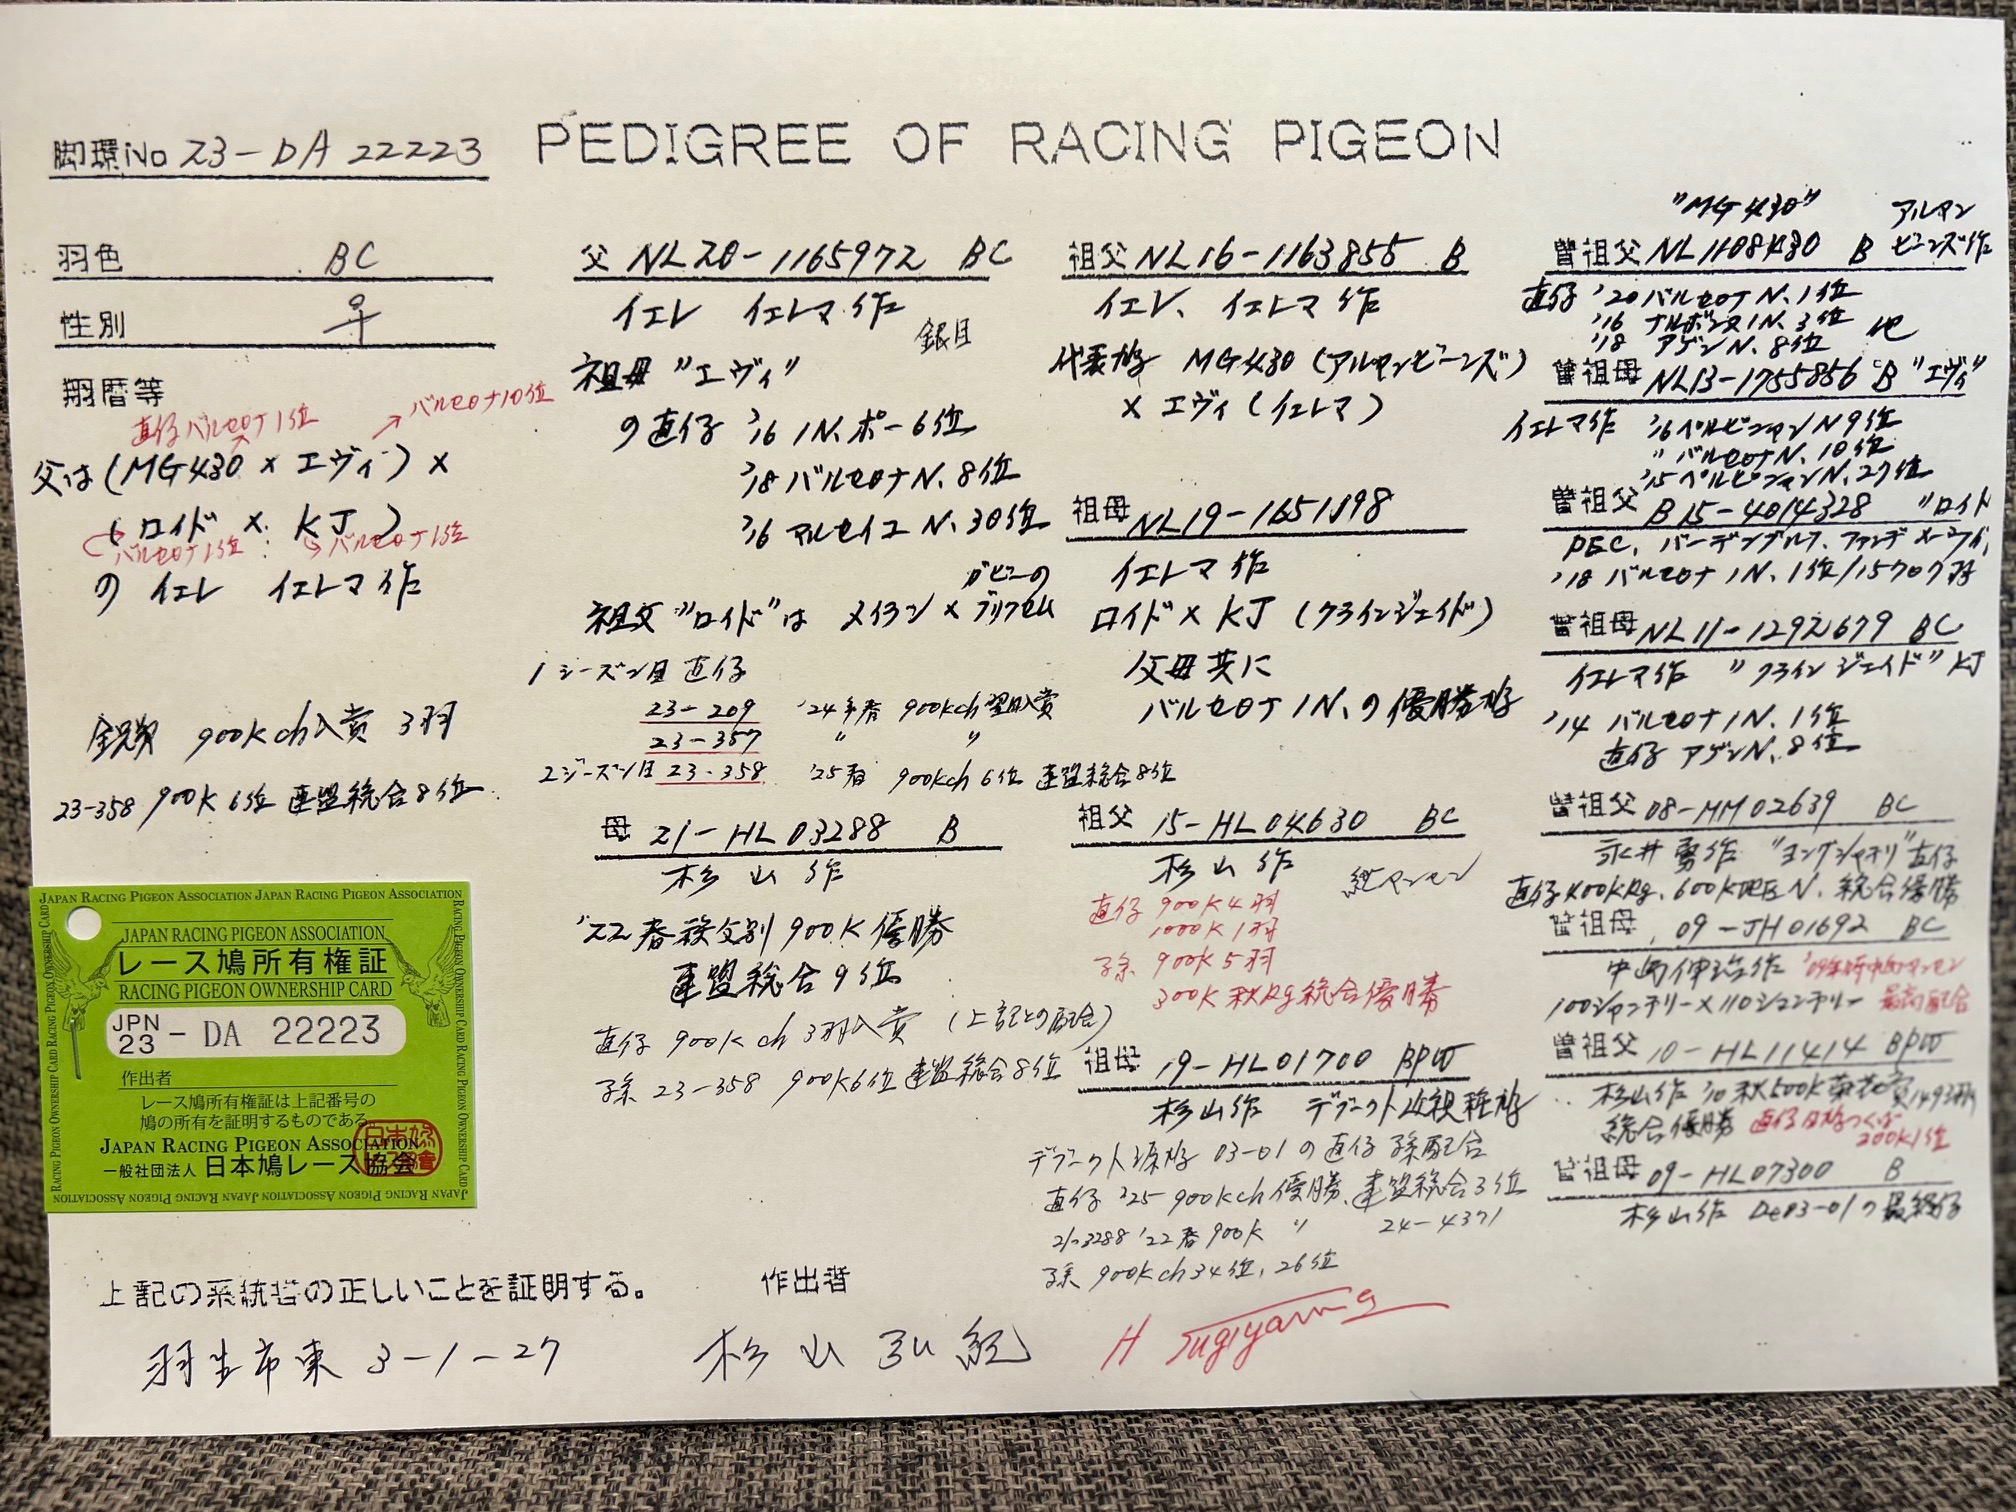 脚環No 23-DA 22223
PEDIGREE OF RACING PIGEON
羽色 BC
性別 ♀
翔暦等
直仔バルセロナ1位
バルセロナ10位
父は(MG430 × エヴィ) ×
(ロイド × KJ)
バルセロナ1位 バルセロナ1位
の イエレ イエレマ作
全兄弟 900Kch入賞 3羽
23-358 900K 6位 連盟総合8位
JAPAN RACING PIGEON ASSOCIATION
レース鳩所有権証
RACING PIGEON OWNERSHIP CARD
JPN 23 - DA 22223
作出者
レース鳩所有権証は上記番号の
鳩の所有を証明するものである
JAPAN RACING PIGEON ASSOCIATION
一般社団法人 日本鳩レース協会
父 NL20-1165972 BC
イエレ イエレマ作
銀目
祖母"エヴィ"
の直仔 '16 IN.ポー6位
'18 バルセロナN.8位
'16 マルセイユN.30位
祖父"ロイド"は メイヨン × ガビーの
1シーズン目 直仔
23-209 '24年春 900Kch翌日入賞
23-357 〃 〃
2シーズン目 23-358 '25春 900Kch 6位 連盟総合8位
母 21-HL03288 B
杉山作
'22春秩父別900K優勝
連盟総合9位
直仔 900Kch 3羽入賞 (上記との配合)
孫 23-358 900K6位 連盟総合8位
祖父 NL16-1163855 B
イエレ、イエレマ作
代表鳩 MG430 (アルマンビーンズ)
× エヴィ (イエレマ)
祖母 NL19-1651198
イエレマ作
ロイド × KJ (クラインジェイド)
父母共に
バルセロナIN.の優勝鳩
祖父 15-HL04630 BC
杉山作
直仔 900K4羽
1000K1羽
孫 900K5羽
300K秋Rg総合優勝
祖母 19-HL01700 BPW
杉山作
03-01の直仔 孫配合
直仔 '25 900Kch優勝、連盟総合3位
21-3288 '22春900K 〃 24-4371
孫 900Kch34位,26位
"MG430" アルマン
曽祖父 NL1108430 B ビーンズ作
直仔 '20 バルセロナN.1位
'16 ナルボンヌIN.3位 他
'18 アジャンN.8位
曽祖母 NL13-1755856 B "エヴィ"
イエレマ作 '16ペルピニャンN9位
〃 バルセロナN.10位
'15ペルピニャンN.27位
曽祖父 B15-4014328 "ロイド
PEC.
'18 バルセロナIN.1位
曽祖母 NL11-1292679 BC
イエレマ作 "クラインジェイド" KJ
'14 バルセロナIN.1位
直仔 アジャンN.8位
曽祖父 08-MM02639 BC
永井勇作 直仔
直仔400KRg、600K地区N、総合優勝
曽祖母 09-JH01692 BC
100ジャンテリー×110ジャンテリー 最高配合
曽祖父 10-HL11414 BPW
杉山作 '10秋500K
総合優勝 直仔
200K1位
曽祖母 09-HL07300 B
杉山作 De03-01の最終仔
上記の系統書の正しいことを証明する。
作出者
羽生市東3-1-27
杉山弘紀
H Sugiyama